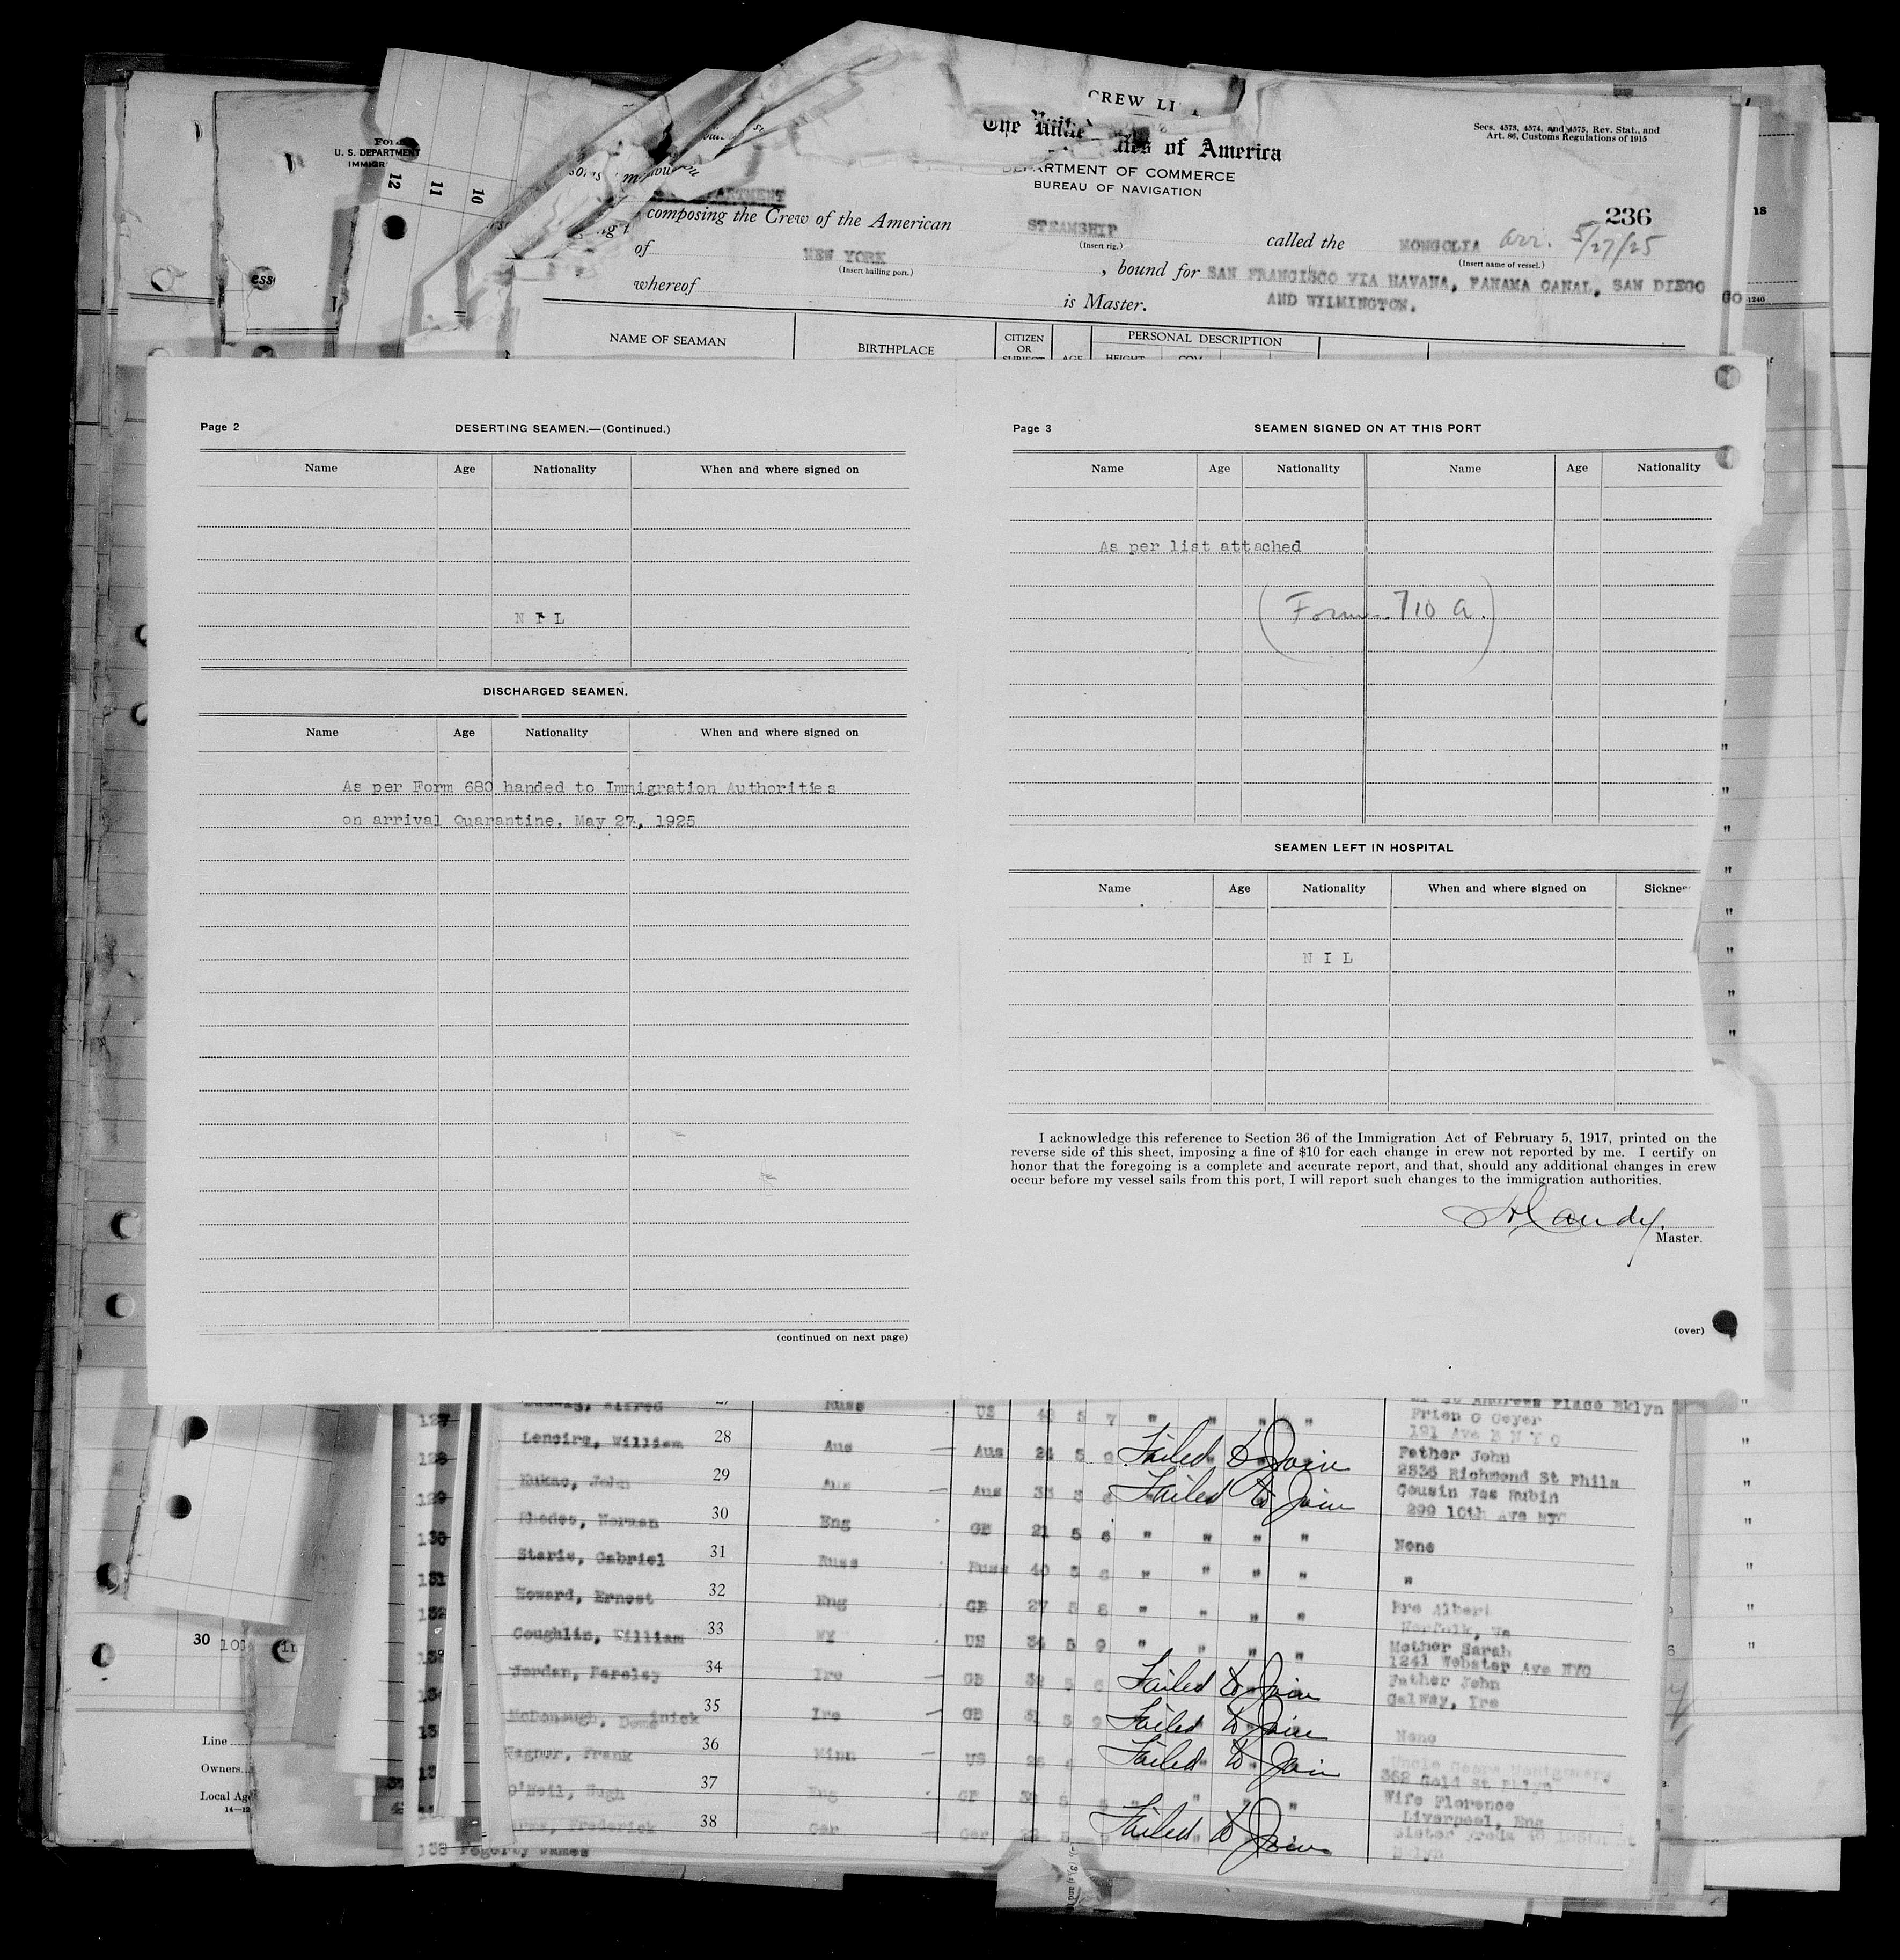 CREW LI
The Unite ates of America
DEPARTMENT OF COMMERCE
BUREAU OF NAVIGATION
Secs. 4573, 4574, and 4575, Rev. Stat., and
Art. 86, Customs Regulations of 1915
U. S. DEPARTMENT
IMMIGR
12
11
10
236
composing the Crew of the American STEAMSHIP called the MONGOLIA arr. 5/27/25
(Insert rig.)
(Insert name of vessel.)
of NEW YORK , bound for SAN FRANCISCO VIA HAVANA, PANAMA CANAL, SAN DIEGO
(Insert hailing port.)
AND WILMINGTON.
whereof is Master.
NAME OF SEAMAN BIRTHPLACE CITIZEN OR SUBJECT AGE PERSONAL DESCRIPTION
HEIGHT
Page 2 DESERTING SEAMEN.—(Continued.)
Name Age Nationality When and where signed on
N I L
DISCHARGED SEAMEN.
Name Age Nationality When and where signed on
As per Form 680 handed to Immigration Authorities
on arrival Quarantine. May 27, 1925
(continued on next page)
Page 3 SEAMEN SIGNED ON AT THIS PORT
Name Age Nationality Name Age Nationality
As per list attached
(Form 710 a.)
SEAMEN LEFT IN HOSPITAL
Name Age Nationality When and where signed on Sicknes
N I L
I acknowledge this reference to Section 36 of the Immigration Act of February 5, 1917, printed on the
reverse side of this sheet, imposing a fine of $10 for each change in crew not reported by me. I certify on
honor that the foregoing is a complete and accurate report, and that, should any additional changes in crew
occur before my vessel sails from this port, I will report such changes to the immigration authorities.
Handy.
Master.
(over)
127 Alfred 27 Russ US 5 7 " " " " St Andrews Place Bklyn
Frien G Geyer
191 Ave B N Y C
128 William 28 Aus Aus 24 5 9 Failed to Join Father John
2336 Richmond St Phila
129 John 29 Aus Aus 33 Failed to Join Cousin Jos Rubin
299 10th Ave NYC
130 Rhodes, Norman 30 Eng GB 21 5 6 " " " " None
131 Staris, Gabriel 31 Russ Russ 40 5 " " " " "
132 Howard, Ernest 32 Eng GB 27 5 8 " " " " Bro Albert
Norfolk, Va
Coughlin, William 33 NY US 34 5 9 " " " " Mother Sarah
1241 Webster Ave NYC
Jordan, 34 Ire GB 5 Failed to Join Father John
Galway, Ire
McDonough, Dominick 35 Ire GB 31 5 9 Failed to Join None
Wagner, Frank 36 Minn US Failed to Join Uncle
362 Gold St Bklyn
O'Neil, Hugh 37 Eng GB " " " Wife Florence
Liverpool, Eng
Frederick 38 Ger Ger Failed to Join Sister
138 Fogerty James
30
Line
Owners
Local Age
14—12